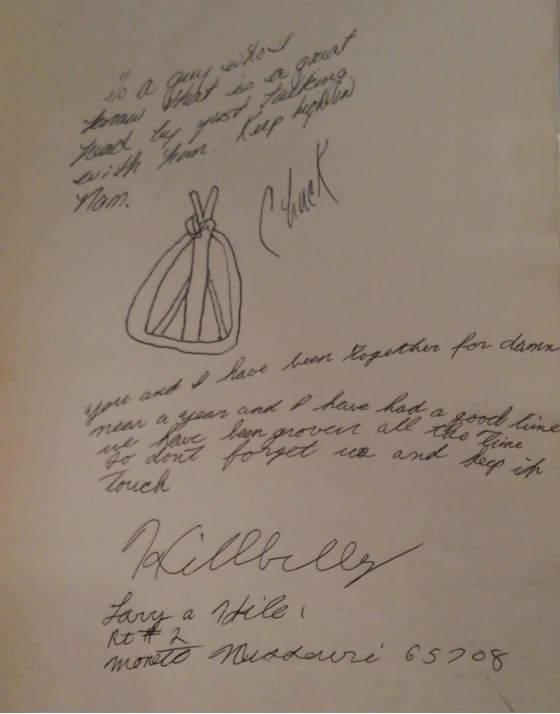 To a guy who I
know that is a great
head by just talking
with him. Keep high in
Nam.
Chuck
you and I have been together for damn
near a year and I have had a good time
we have been groven all the time
so dont forget us and keep in
touch
Hillbilly
Lary a Hile
Rt # 2
Monett Missouri 65708